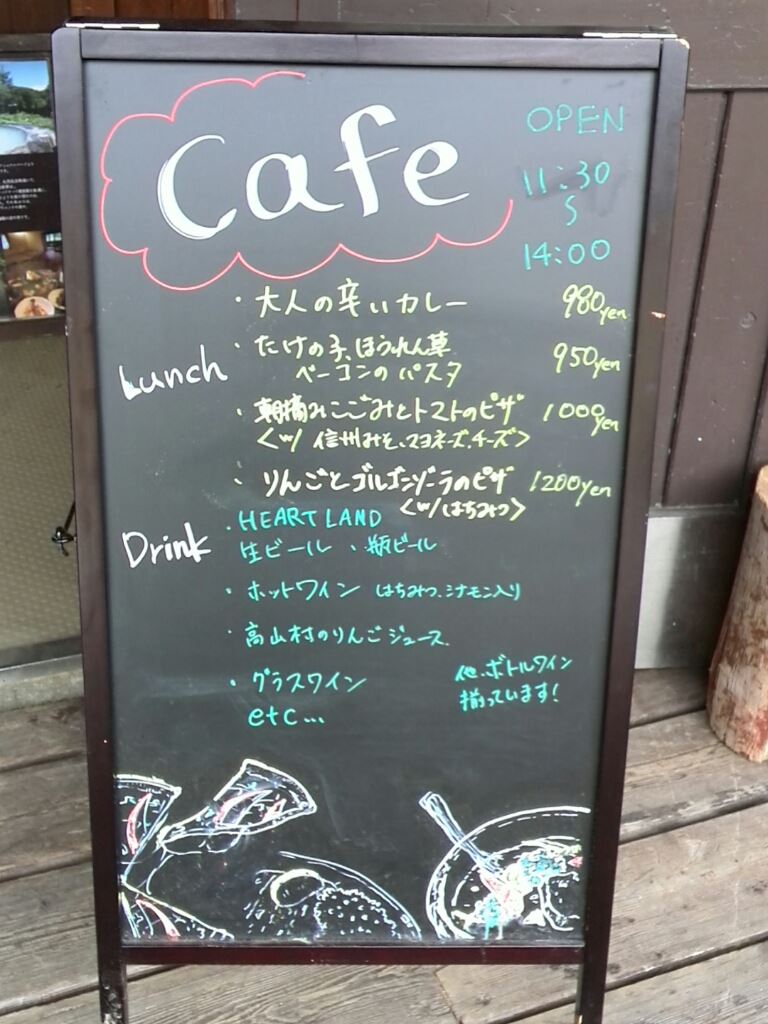 Cafe
OPEN
11:30
S
14:00
・大人の辛いカレー 980yen
Lunch
・たけの子、ほうれん草 950yen
ベーコンのパスタ
・朝摘みこごみとトマトのピザ 1000yen
<w/ 信州みそ、マヨネーズ、チーズ>
・りんごとゴルゴンゾーラのピザ 1200yen
<w/ はちみつ>
Drink
・HEARTLAND
生ビール、瓶ビール
・ホットワイン はちみつ、シナモン入り
・高山村のりんごジュース
・グラスワイン
etc...
他、ボトルワイン
揃っています!